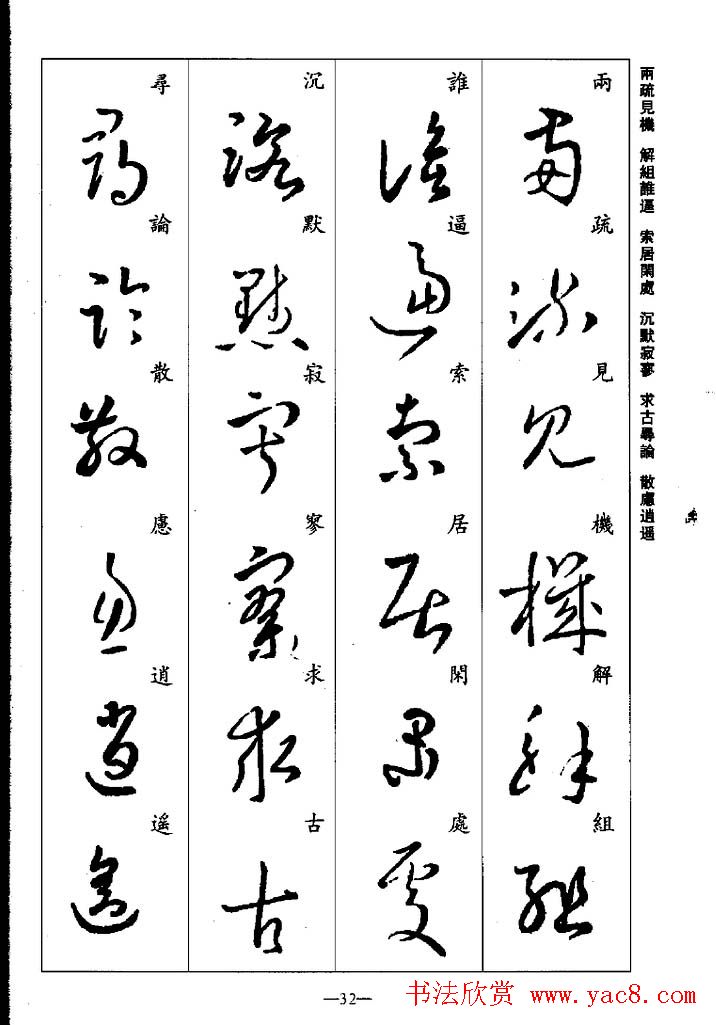 兩疏見機　解組誰逼　索居閑處　沉默寂寥　求古尋論　散慮逍遥
兩疏見機解組
誰逼索居閑處
沉默寂寥求古
尋論散慮逍遥
—32—
书法欣赏 www.yac8.com